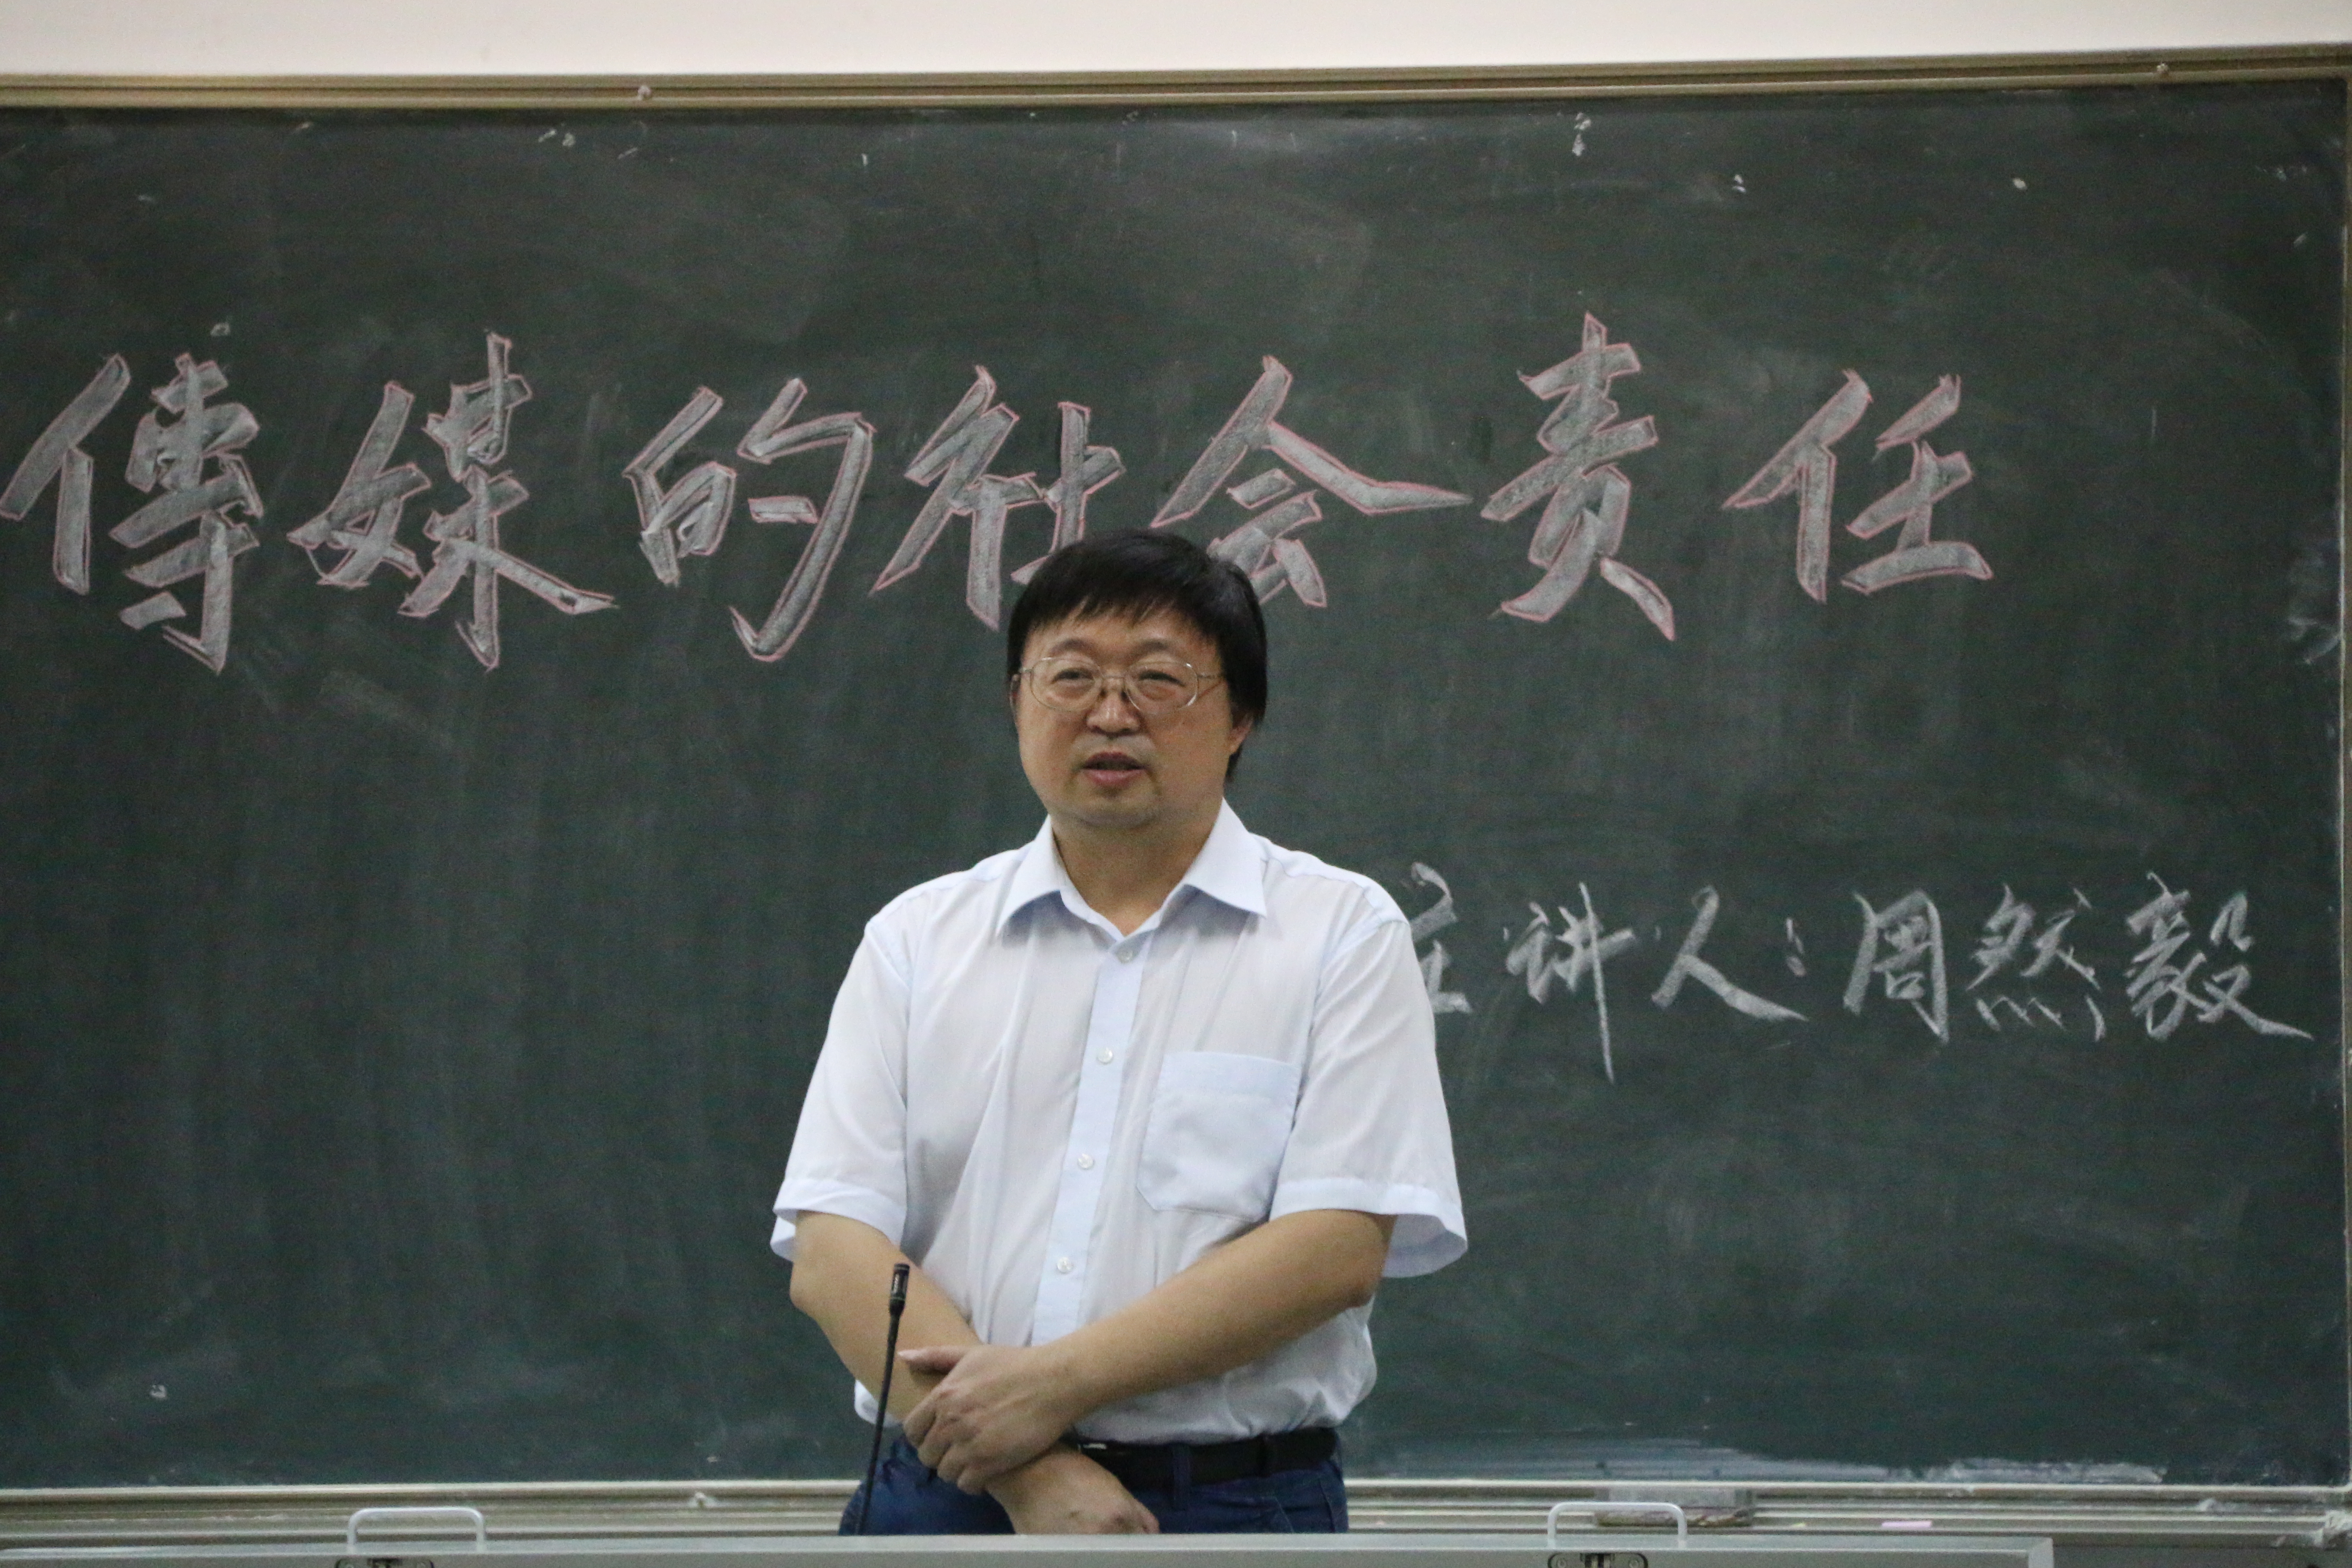 傳媒的社会责任
主讲人：周然毅